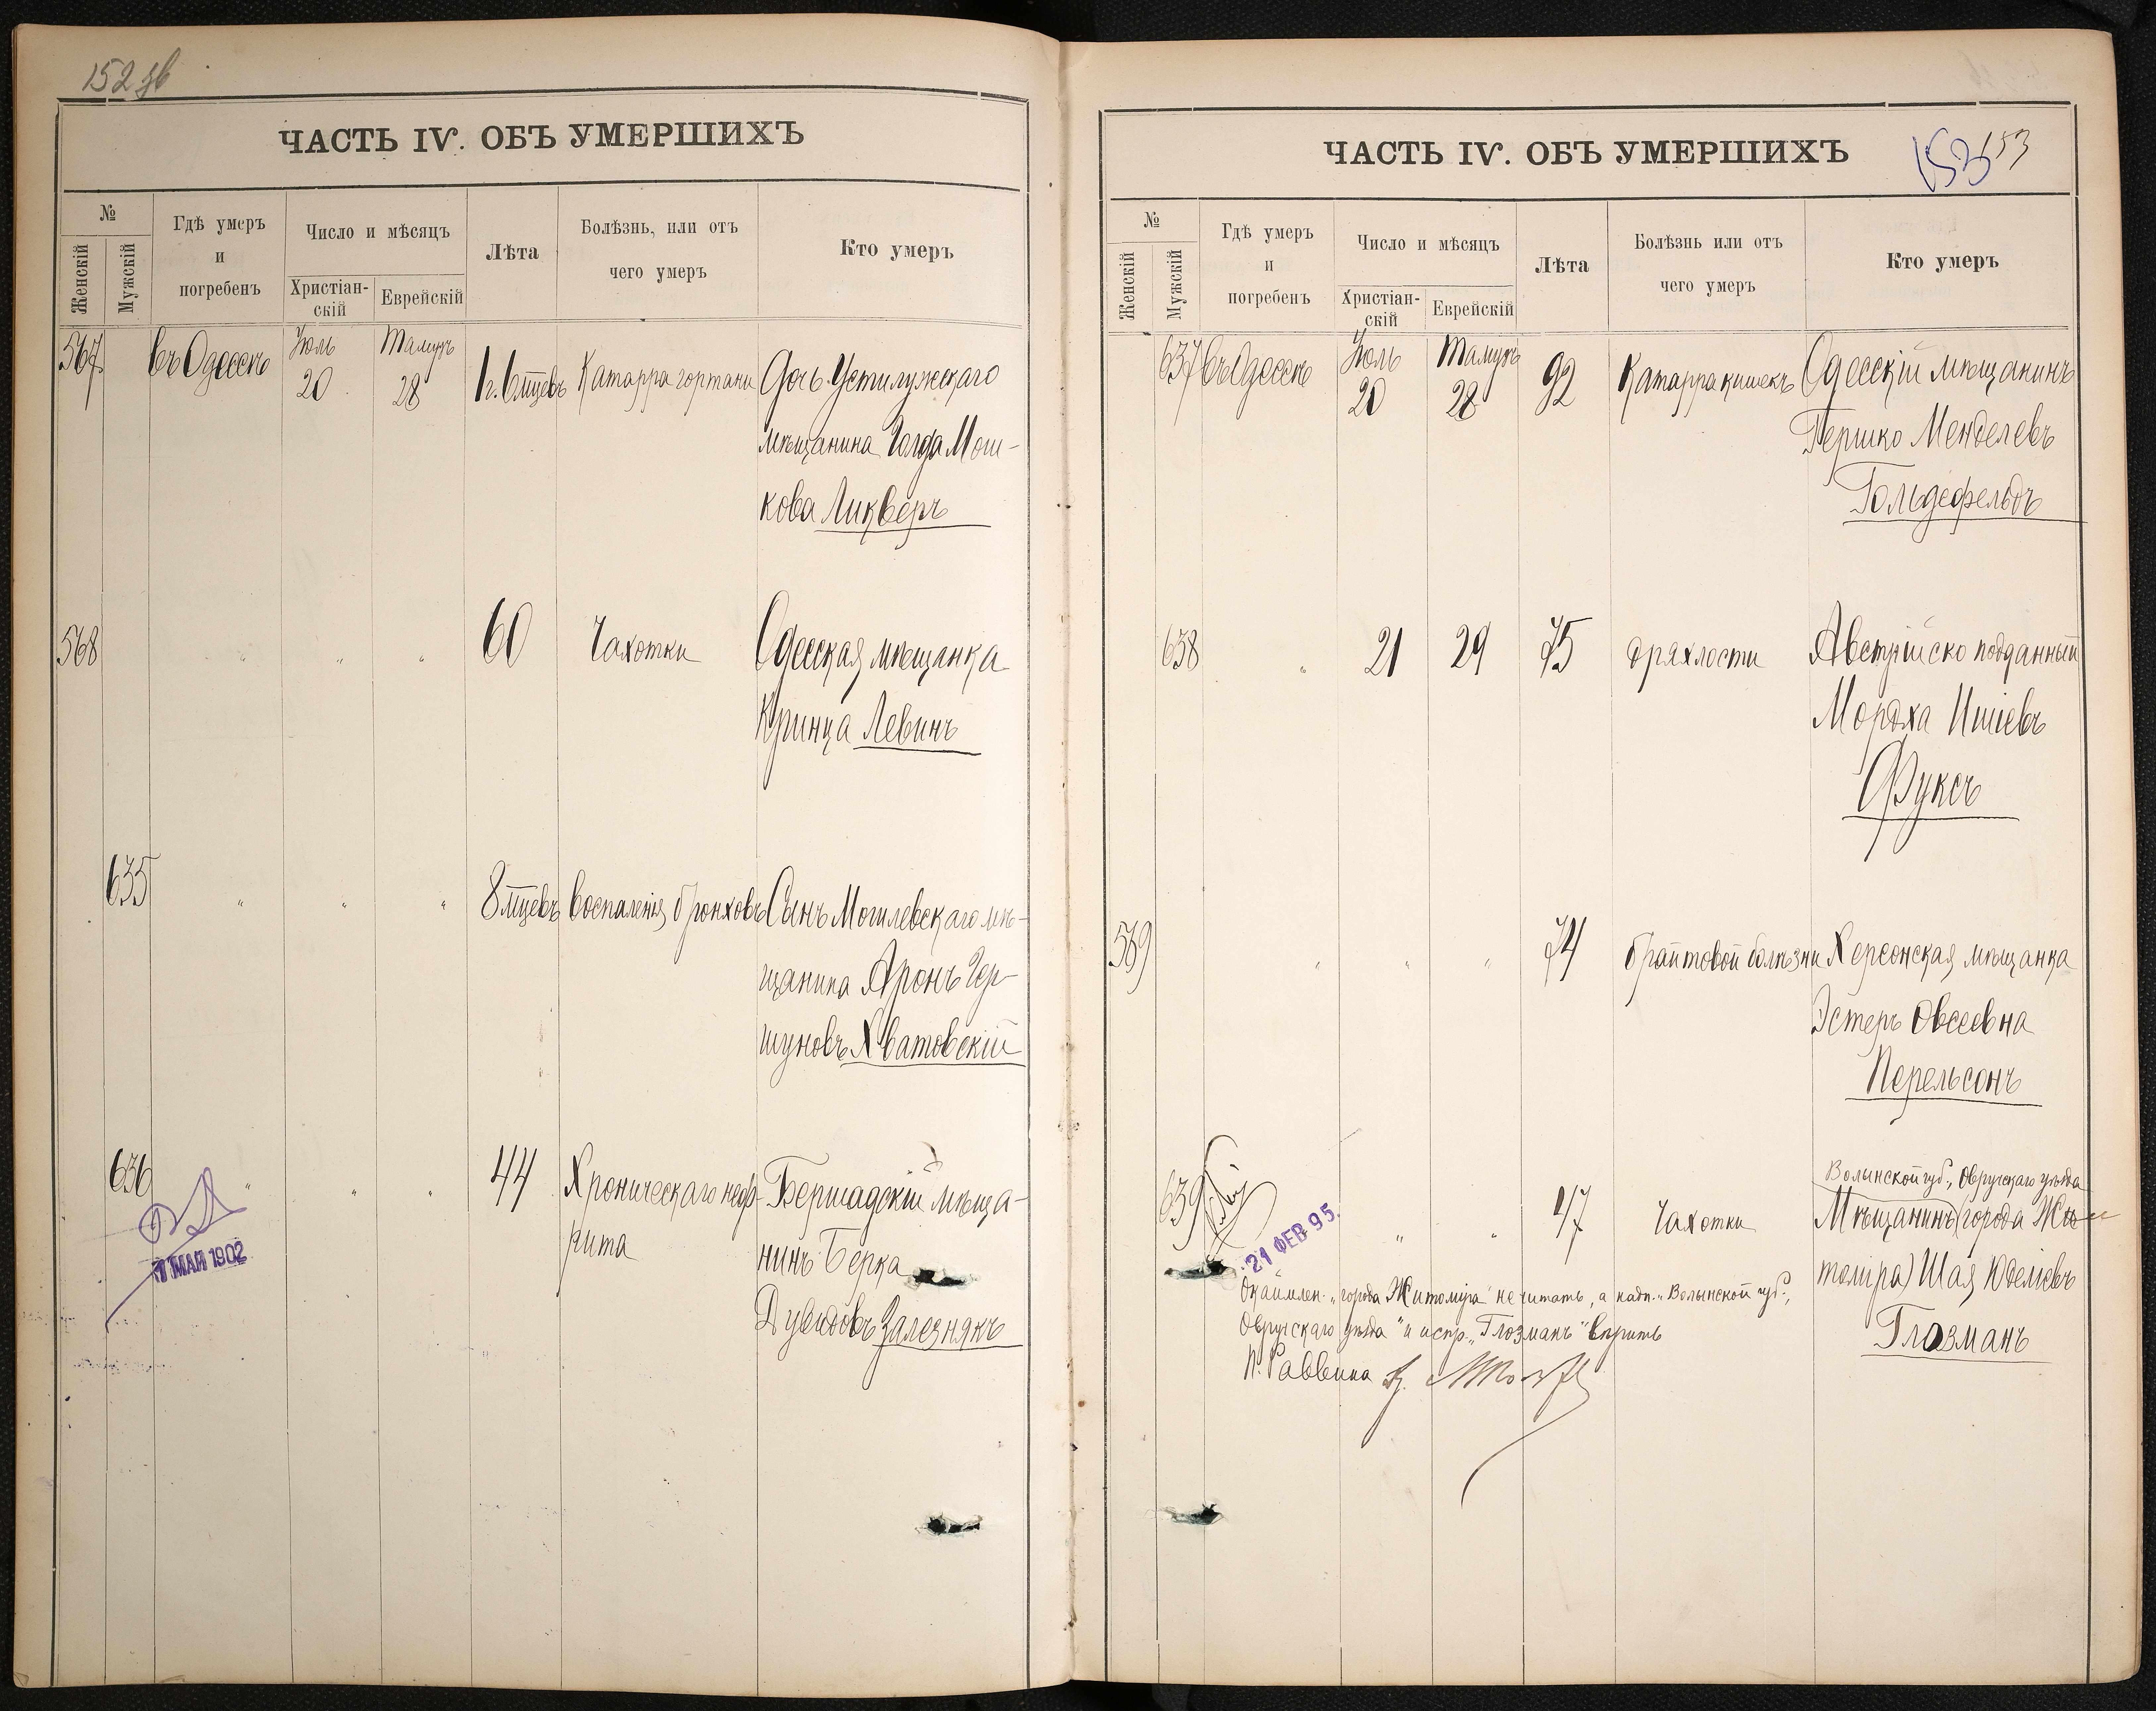 152 зв
ЧАСТЬ IV. ОБЪ УМЕРШИХЪ
№
Женскій
Мужскій
Гдѣ умеръ
и
погребенъ
Число и мѣсяцъ
Христіан-
скій
Еврейскій
Лѣта
Болѣзнь, или отъ
чего умеръ
Кто умеръ
567 въ Одессѣ Іюль 20 Тамузъ 28 1 г. 6 мцевъ Катарра гортани Дочь Устилужскаго
мѣщанина Голда Мош-
кова Ликверъ
568 " " " 60 Чахотки Одесская мѣщанка
Кринца Левинъ
635 " " " 8 мцевъ Воспаленія бронховъ Сынъ Могилевскаго мѣ-
щанина Аронъ Гер-
шуновъ Хватовскій
636 " " " 44 Хроническаго неф- Бершадскій мѣща-
рита нинъ Берка
Дувидовъ Зализнякъ
1 МАЙ 1902
ЧАСТЬ IV. ОБЪ УМЕРШИХЪ
153 153
№
Женскій
Мужскій
Гдѣ умеръ
и
погребенъ
Число и мѣсяцъ
Христіан-
скій
Еврейскій
Лѣта
Болѣзнь или отъ
чего умеръ
Кто умеръ
637 въ Одессѣ Іюль 20 Тамузъ 28 92 Катарра кишекъ Одесскій мѣщанинъ
Гершко Менделевъ
Гольдефельдъ
638 " 21 29 75 дряхлости Австрійско подданный
Мордха Ишіевъ
Фуксъ
569 " " " 74 брайтовой болѣзни Херсонская мѣщанка
Эстеръ Овсеевна
Перельсонъ
Волынской губ., Овручскаго уѣзда
639 " " 47 Чахотки Мѣщанинъ (города Жи-
томіра) Шая Юделевъ
Глозманъ
21 ФЕВ 95.
Окаймлен. "города Житомира" не читать, а надп. "Волынской губ.,
Овручскаго уѣзда" и испр. "Глозманъ" вѣрить
П. Раввина